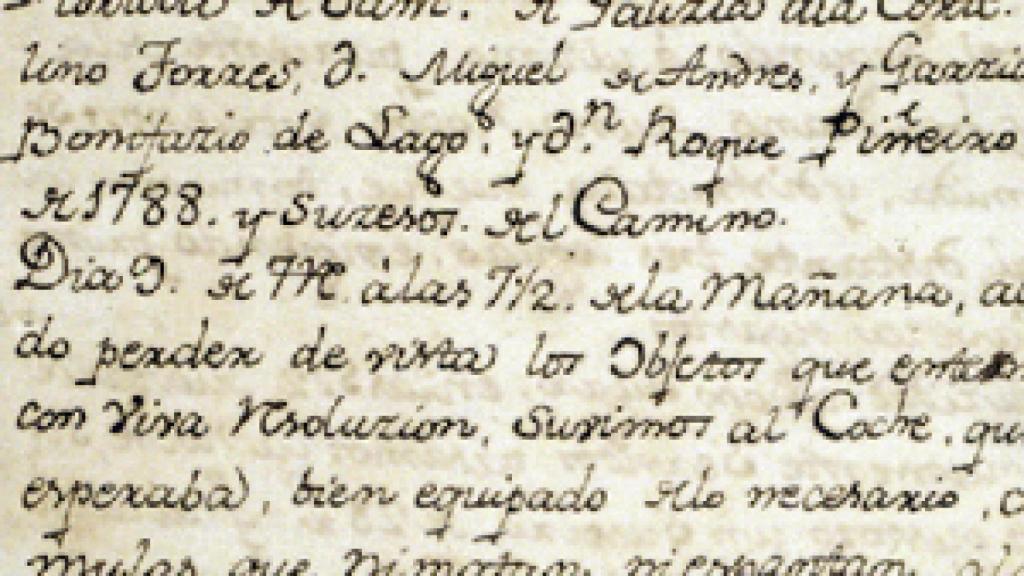 lino Torres, d. Miguel de Andres, y Garzia
Bonifazio de Lago. y d.n Roque Piñeiro
de 1788. y Suzesos. del Camino.
Dia 9. de 7re. à las 7 1/2. de la Mañana,
do perder de vista los Objetos que
con Viva Resoluzion, Suvimos al Coche, que
esperaba, bien equipado de lo necesario,
mulas que ni matan, ni espantan,